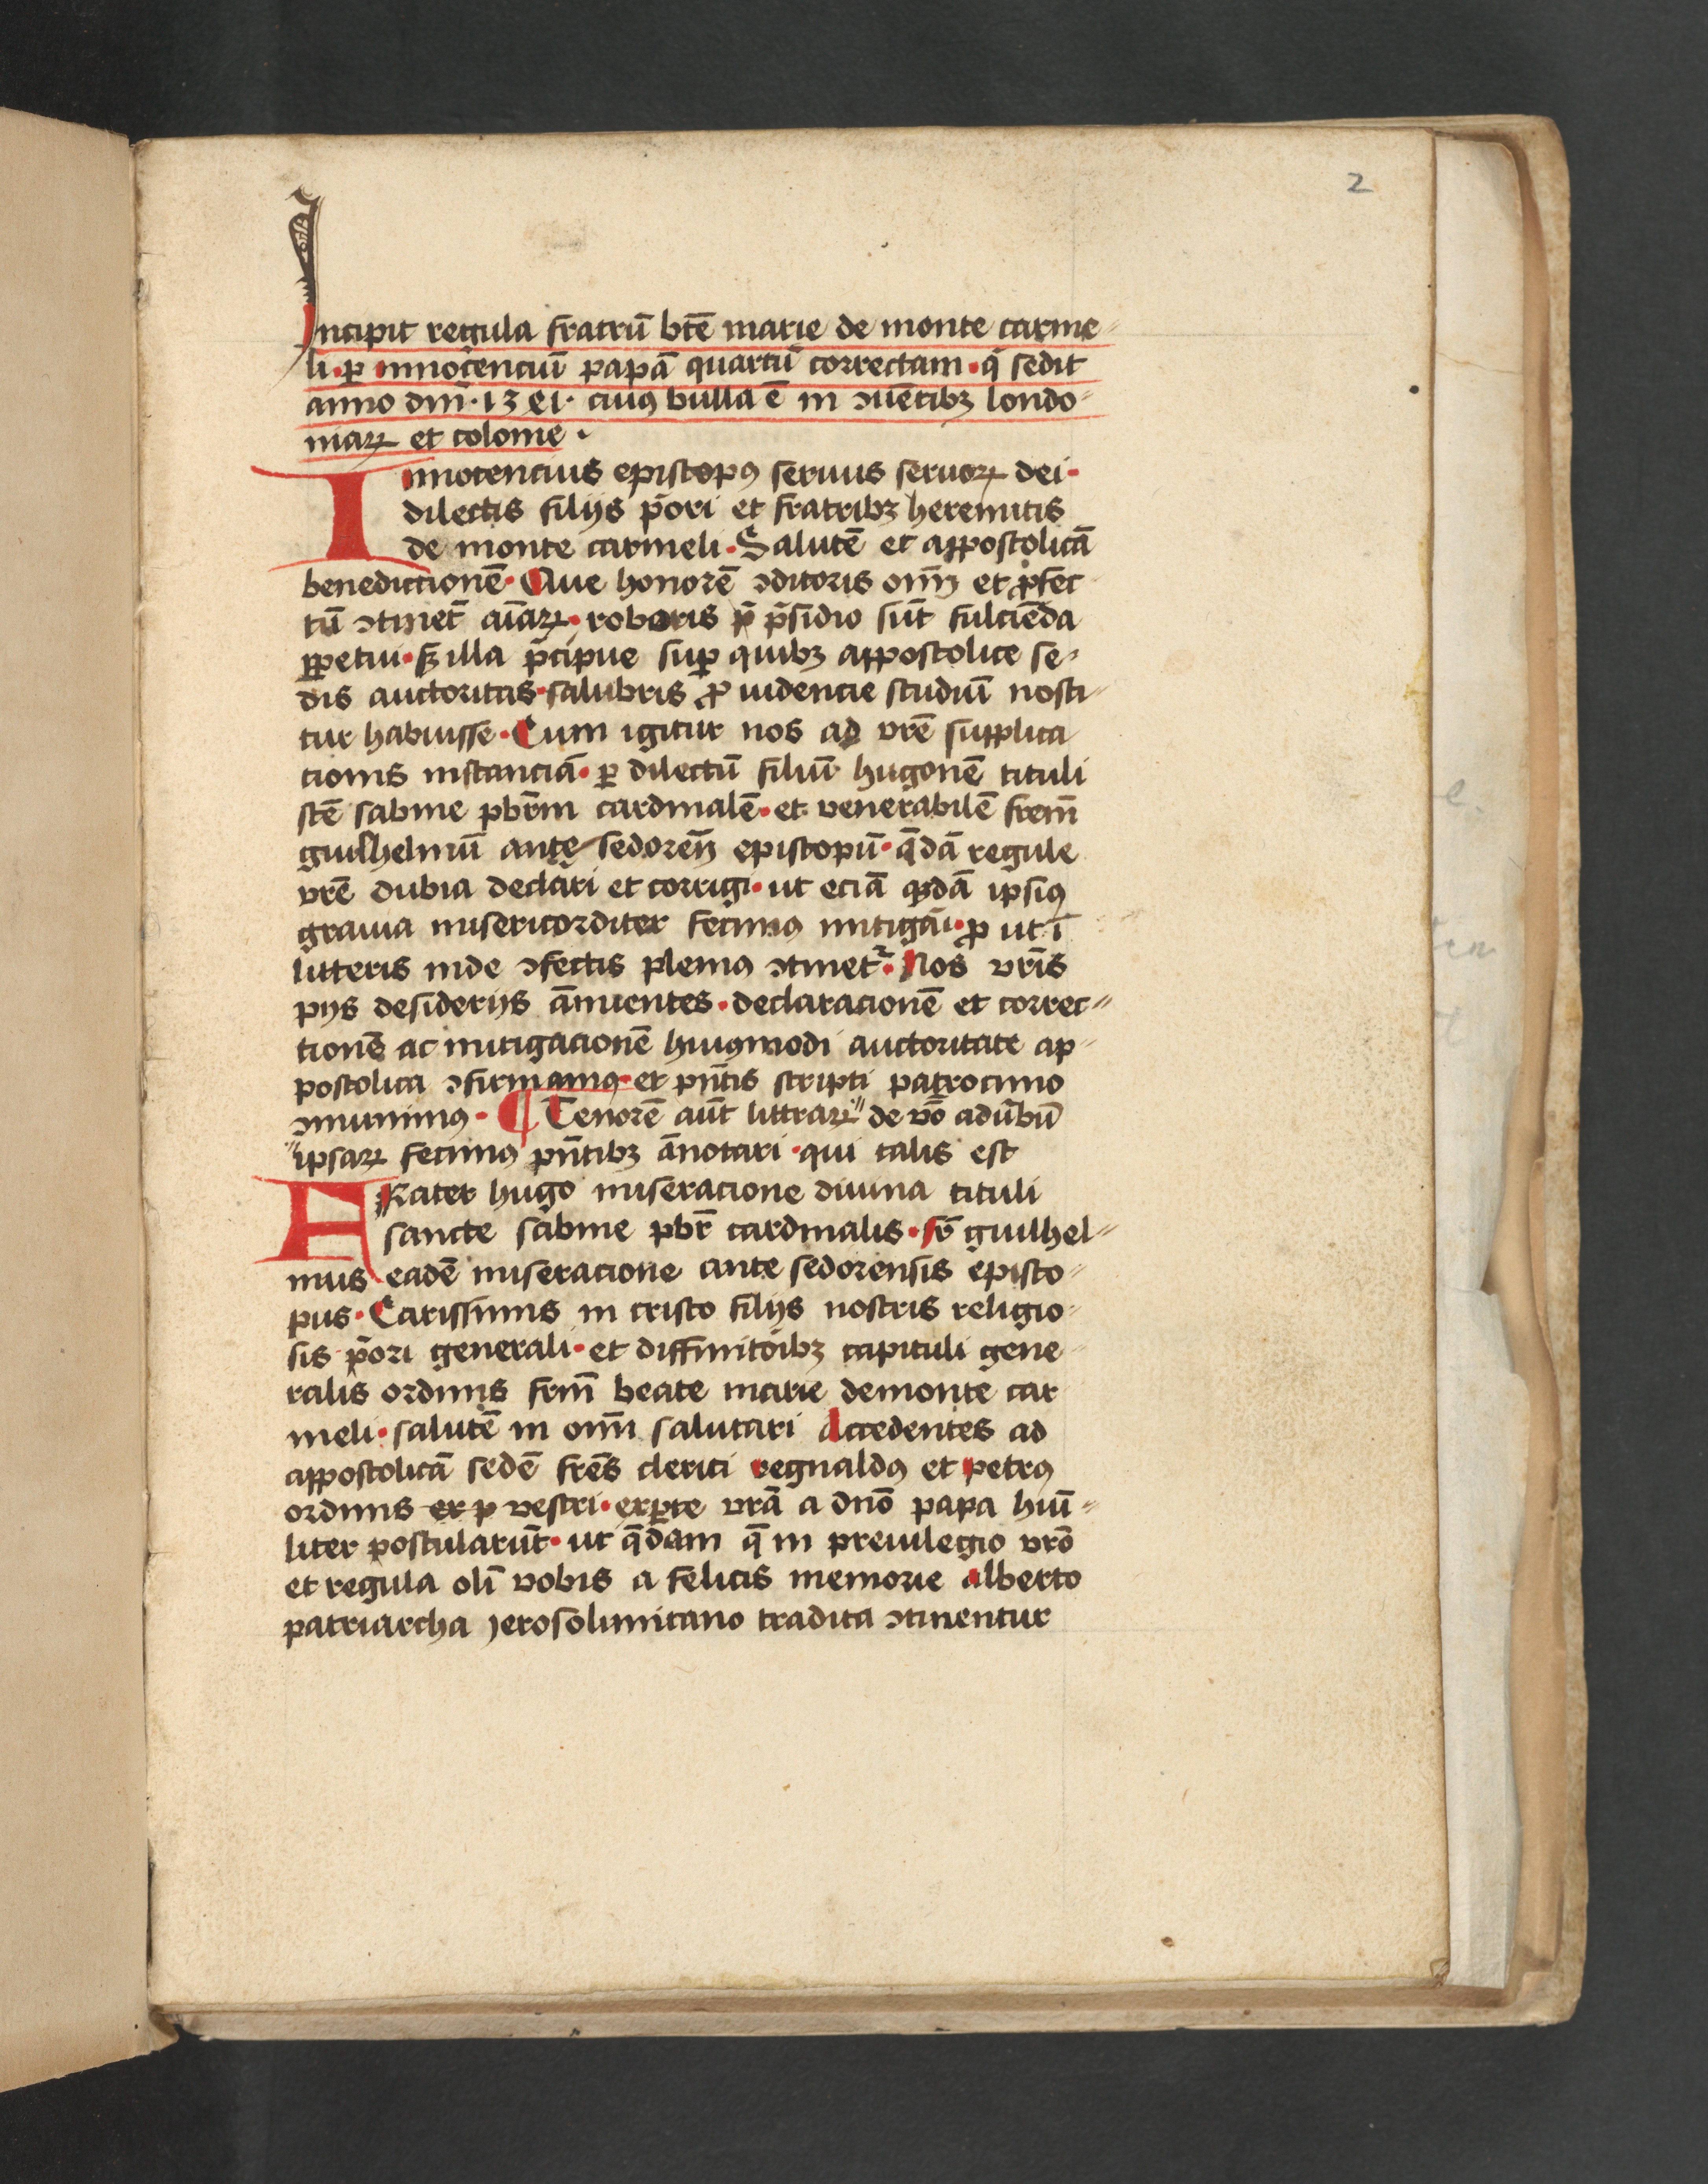 2
Incipit regula fratrū btē marie de monte carme
li · ꝑ innocenciū papā quartū correctam · q̄ sedit
anno dm̄ · cuiꝯ bulla ē in ↄuētibꝫ londo
niaꝝ et colonie ·
Innocencius episcopꝯ seruus seruoꝝ dei ·
dilectis filijs p̄ori et fratribꝫ heremitis
de monte carmeli · Salutē et appostolicā
benedictionē · Que honorē ↄditoris oīm et ꝓfec
tū ↄtinet̄ aīaꝝ · roboris p̄sidio sūt fulciēda
ꝑpetui · sꝫ illa p̄cipue suꝑ quibꝫ appostolice se
dis auctoritas · salubris ꝓ uidencie studiū nosci
tur habuisse · Cum igitur nos ad vrē supplica
cionis instanciā · ꝑ dilectū filiū hugonē tituli
scē sabine pbr̄m cardinalē · et venerabilē frem̄
guilhelmū ante sedoreñ episcopū · q̄dā regule
vrē dubia declāri et corrigi · ut eciā q̄dā ipsiꝯ
grauia misericorditer fecimꝯ mitigāi · ꝓ ut ī
litteris inde ↄfectis pleniꝯ ↄtinet᷑ · Nos vrīs
pijs desiderijs ānuentes · declaracionē et correc
tionē ac mitigacionē huiꝯmodi auctoritate ap
postolica ↄfirmamꝯ · et pn̄tis scripti patrocinio
ↄmunimꝯ · ¶ Tenorē aūt litteraꝝ de v̄o ad v̄bū
ipsaꝝ fecimꝯ pn̄tibꝫ ānotari · qui talis est
FRater hugo miseracione diuina tituli
sancte sabine pbr̄ cardinalis · fr̄ guilhel
mus eadē miseracione ante sedorensis episco
pus · Carissimis in cristo filijs nostris religio
sis p̄ori generali · et diffinitōibꝫ capituli gene
ralis ordinis frm̄ beate marie demonte car
meli · salutē in oīm salutari Accedentes ad
appostolicā sedē frēs clerici regnaldꝯ et petrꝯ
ordinis ex p vestri · exꝑte vrā a dn̄o papa hūi
liter postularūt · ut q̄dam q̄ in preuilegio vrō
et regula olī vobis a felicis memorie alberto
patriarcha jerosolimitano tradita ↄtinentur